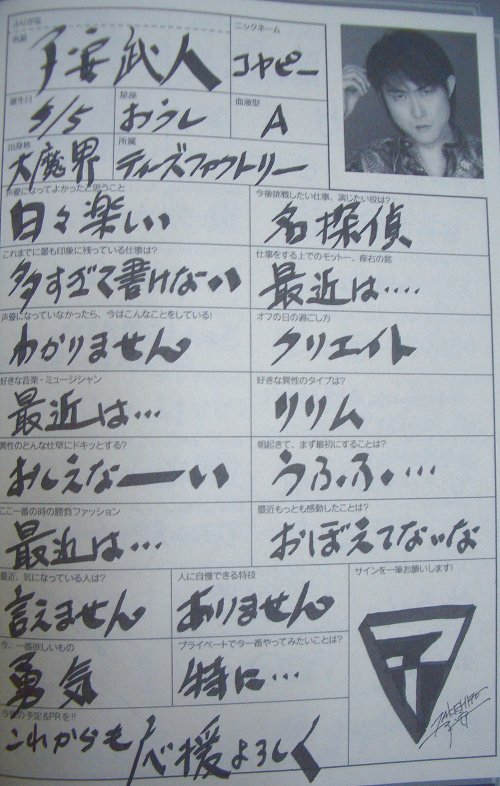 ふりがな
名前
子安武人
ニックネーム
コヤピー
誕生日
5/5
星座
おうし
血液型
A
出身地
大魔界
所属
ティーズファクトリー
声優になってよかったと思うこと
日々楽しい
今後挑戦したい仕事、演じたい役は?
名探偵
これまでに最も印象に残っている仕事は?
多すぎて書けない
仕事をする上でのモットー、座右の銘
最近は‥‥
声優になっていなかったら、今はこんなことをしている!
わかりません
オフの日の過ごし方
クリエイト
好きな音楽・ミュージシャン
最近は…
好きな異性のタイプは?
リリム
異性のどんな仕草にドキッとする?
おしえなーい
朝起きて、まず最初にすることは?
うふふ・…
ここ一番の時の勝負ファッション
最近は…
最近もっとも感動したことは?
おぼえてないな
最近、気になっている人は?
言えません
人に自慢できる特技
ありません
サインを一筆お願いします!
今、一番欲しいもの
勇気
プライベートで今一番やってみたいことは?
特に…
TAKEHITO
今後の予定&PRを!!
これからも応援よろしく